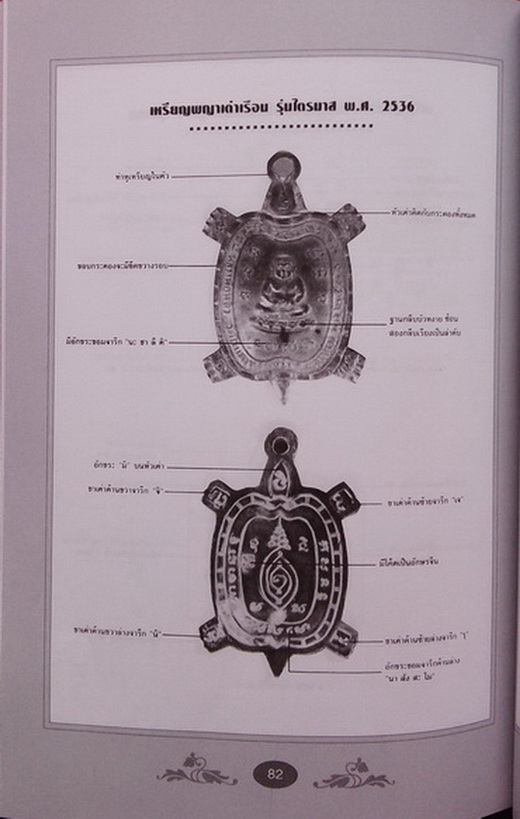 เหรียญพญาเต่าเรือน รุ่นไตรมาส พ.ศ. 2536
ห่วงหูเหรียญในตัว
หัวเต่าติดกับกระดองทั้งหมด
ขอบกระดองจะมีขีดขวางรอบ
ฐานกลีบบัวหงาย ซ้อน
สองกลีบเรียงเป็นลำดับ
มีอักขระขอมจาริก "นะ ชา ลี ติ"
อักขระ "มิ" บนหัวเต่า
ขาเต่าด้านขวาจาริก "จิ"
ขาเต่าด้านซ้ายจาริก "เจ"
มีโค๊ดเป็นอักษรจีน
ขาเต่าด้านขวาล่างจาริก "นิ"
ขาเต่าด้านซ้ายล่างจาริก "รุ"
อักขระขอมจาริกด้านล่าง
"นา สัง สะ ไม"
82